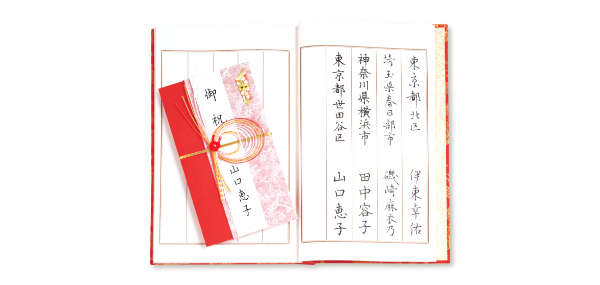 東京都北区 伊東幸佑
埼玉県春日部市 磯崎麻衣乃
神奈川県横浜市 田中容子
東京都世田谷区 山口恵子
御祝
山口恵子